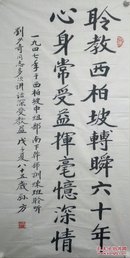 聆教西柏坡轉瞬六十年
心身常受益揮毫憶深情
一九四七年于西柏坡中组部南下幹部訓練班聆听
劉少奇同志多次講話深受教益戊子夏八十五歲